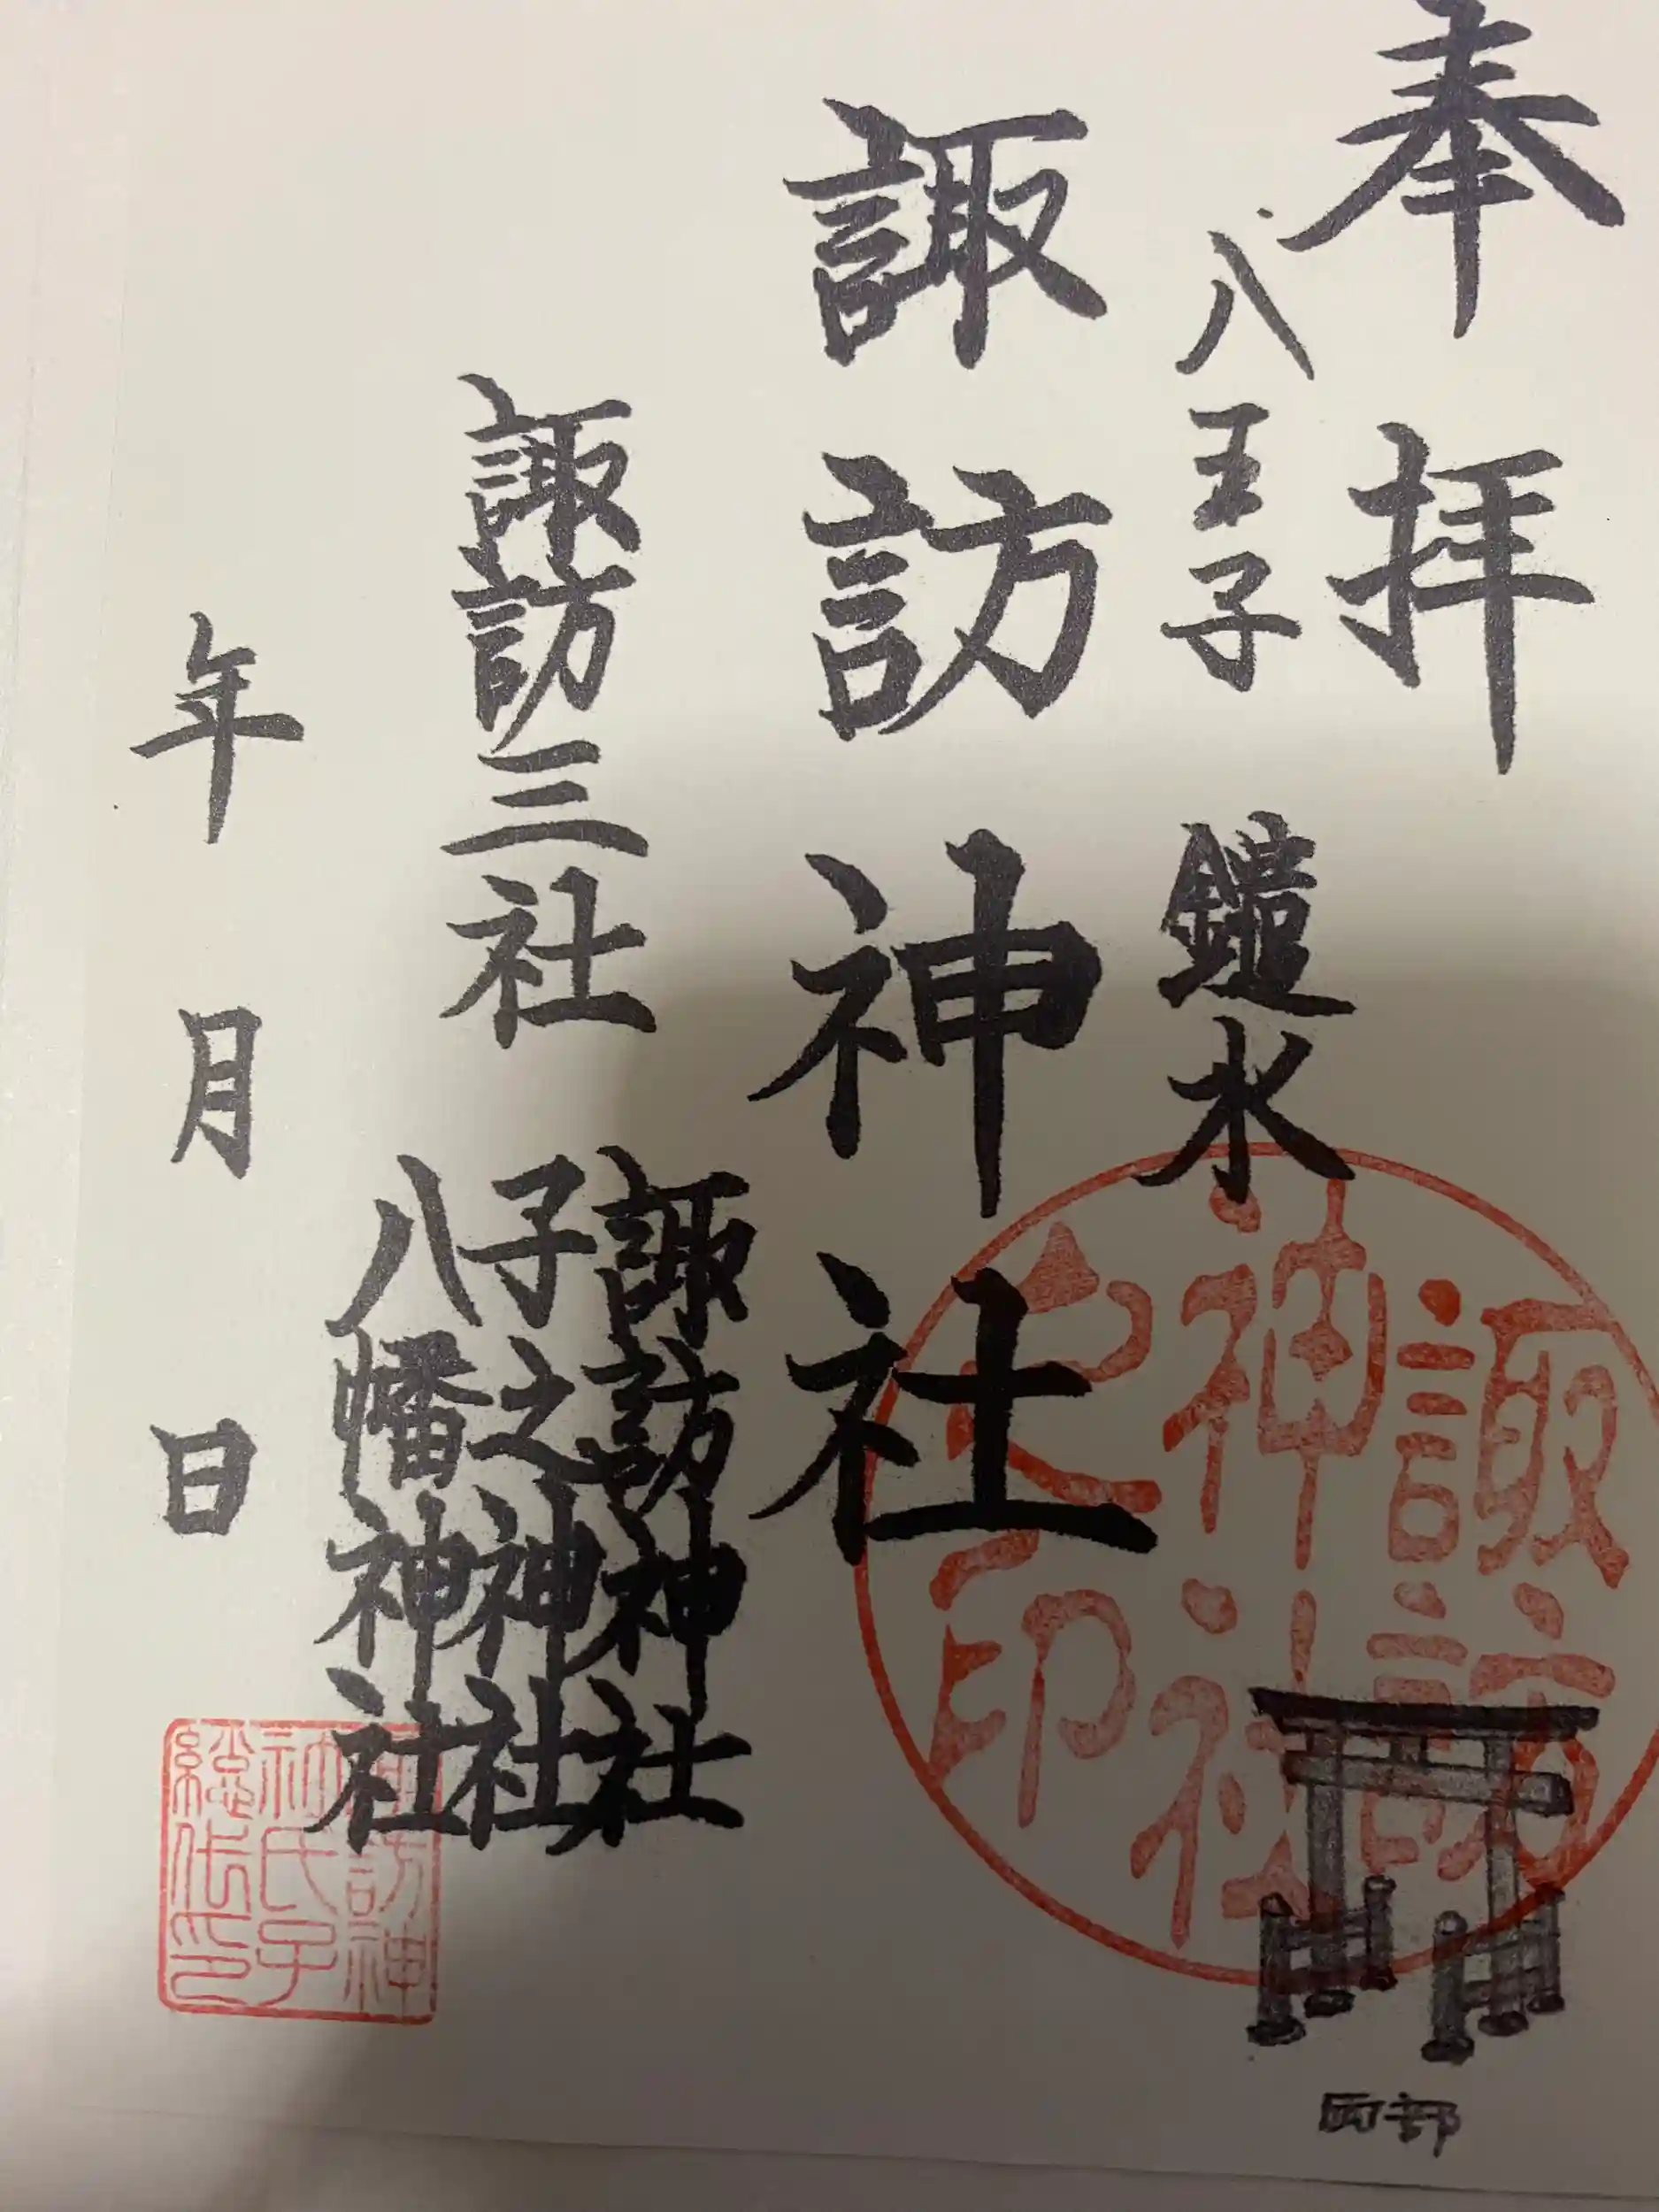 奉拝
八王子 鑓水
諏訪神社
諏訪三社
諏訪神社
子之神社
八幡神社
年 月 日
諏訪
神社
之印
訪神
神氏子
総代印